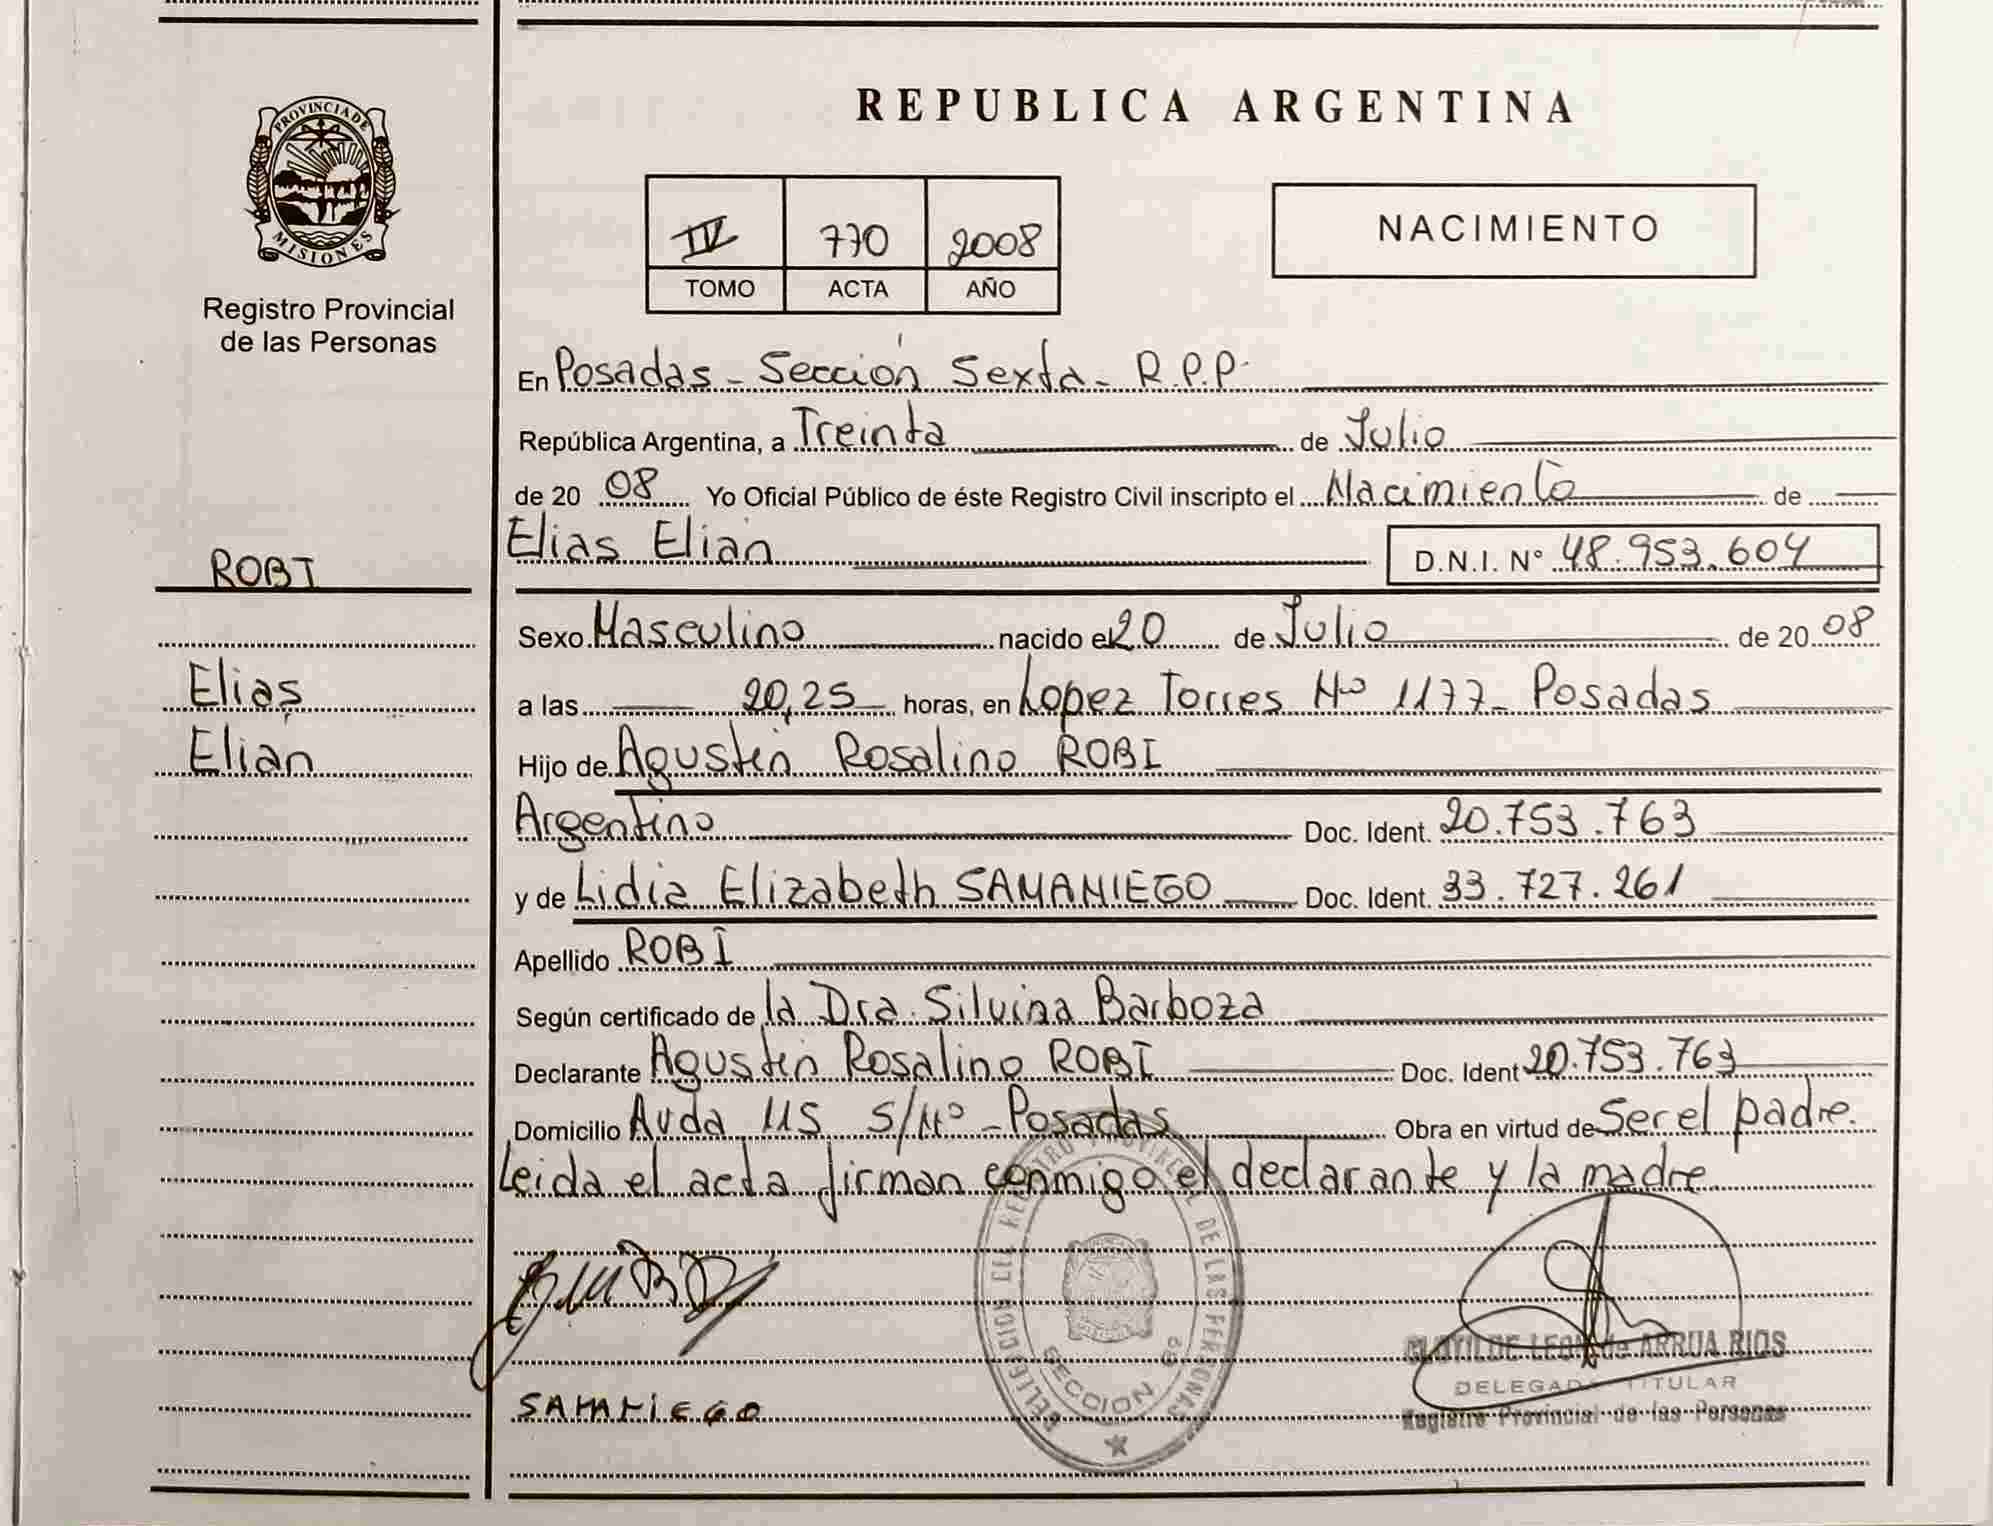 REPUBLICA ARGENTINA
PROVINCIA DE
MISIONES
Registro Provincial
de las Personas
IV 770 2008
TOMO ACTA AÑO
NACIMIENTO
En Posadas - Sección Sexta - R.P.P.
República Argentina, a Treinta de Julio
de 20 08 Yo Oficial Público de éste Registro Civil inscripto el Nacimiento de
ROBI
Elias Elian D.N.I. Nº 48.953.604
Sexo Masculino nacido el 20 de Julio de 20 08
Elias
a las 20,25 horas, en Lopez Torres Nº 1177 - Posadas
Elian
Hijo de Agustin Rosalino ROBI
Argentino Doc. Ident. 20.753.763
y de Lidia Elizabeth SAMANIEGO Doc. Ident. 33.727.261
Apellido ROBI
Según certificado de la Dra. Silvina Barboza
Declarante Agustin Rosalino ROBI Doc. Ident 20.753.763
Domicilio Avda 115 S/Nº - Posadas Obra en virtud de Ser el padre.
Leida el acta firman conmigo el declarante y la madre
SAMANIEGO
DE LAS PERSONAS
SECCION 6ª
CLOTILDE LEON de ARRUA RIOS
DELEGADA TITULAR
Registro Provincial de las Personas